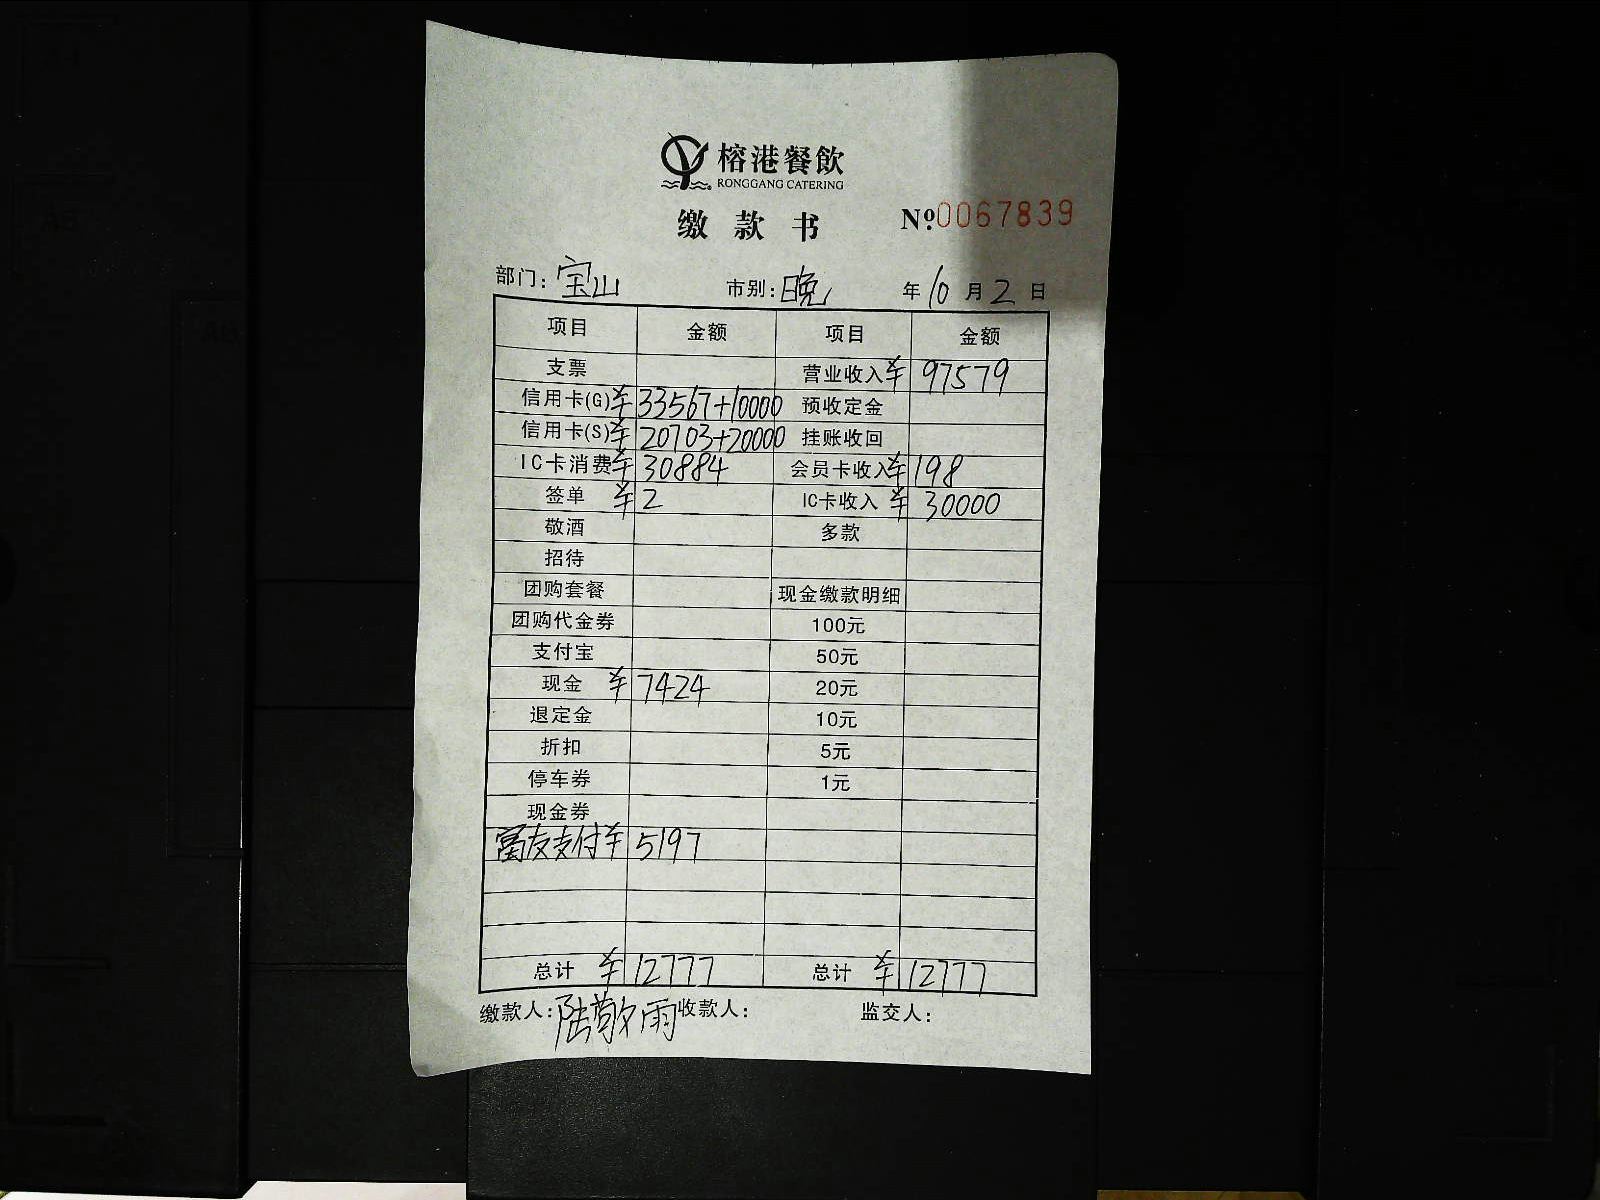 榕港餐飲
RONGGANG CATERING
缴款书 №.0067839
部门:宝山 市别:晚 年10月2日
项目 金额 项目 金额
支票 营业收入¥ 97579
信用卡(G)¥ 33567+10000 预收定金
信用卡(S)¥ 20703+20000 挂账收回
IC卡消费¥ 30884 会员卡收入¥ 198
签单 ¥ 2 IC卡收入 ¥ 30000
敬酒 多款
招待
团购套餐 现金缴款明细
团购代金券 100元
支付宝 50元
现金 ¥ 7424 20元
退定金 10元
折扣 5元
停车券 1元
现金券
富友支付¥ 5197
总计 ¥ 12777 总计 ¥ 12777
缴款人:陆敬雨 收款人: 监交人: